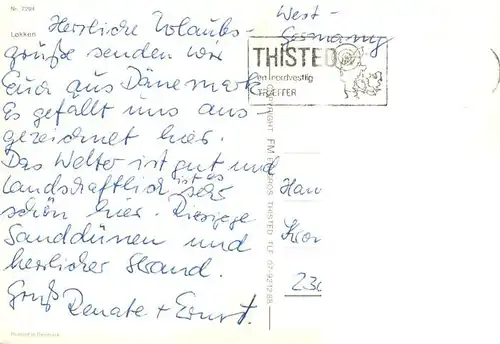 Nr. 7294
Løkken
Herrliche Urlaubs-
grüße senden wir
Euch aus Dänemark.
Es gefällt uns aus-
gezeichnet hier.
Das Wetter ist gut und
landschaftlich ist es sehr
schön hier. Riesige
Sanddünen und
herrlicher Strand.
Gruß
Renate + Ernst.
West-
Germany
THISTED
en nordvestlig
TRÆFFER
COPYRIGHT FM THISTED TLF. 07-921288
Han
Kron
230
Printed in Denmark